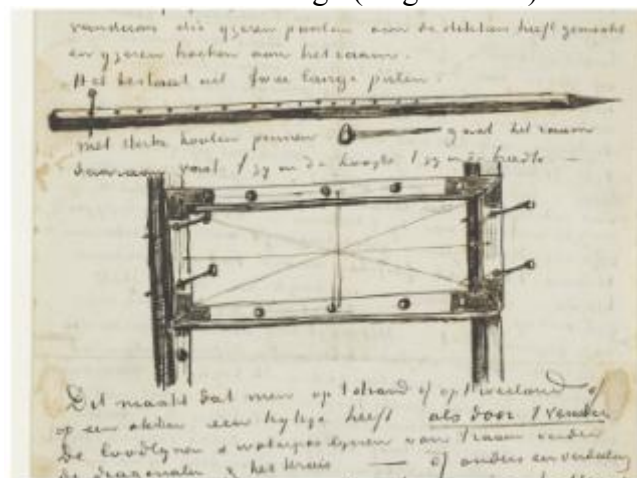 die yzeren punten aan de stokken heeft gemaakt
en yzeren hoeken aan het raam.
Het bestaat uit twee lange palen:
met sterke houten pennen gaat het raam
daaraan vast 't zy in de hoogte 't zy in de breedte —
Dit maakt dat men op 't strand of op 't weiland of
op een akker een kykje heeft als door 't venster
De loodlynen & waterpas lynen van 't raam verder
de diagonalen & het kruis — of anders een verdeeling